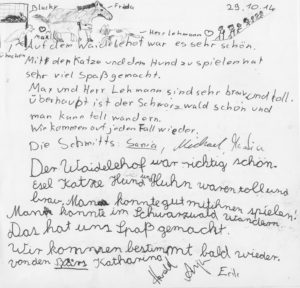 Blacky Frida 29.10.14
Max Herr Lehmann
Auf dem Waidelehof war es sehr schön.
Mit der Katze und dem Hund zu spielen hat
sehr viel Spaß gemacht.
Max und Herr Lehmann sind sehr brav und toll.
Überhaupt ist der Schwarzwald schön und
man kann toll wandern.
Wir kommen auf jeden Fall wieder.
Die Schmitts: Michael
Der Waidelehof war richtig schön.
Esel Katze Hund und Huhn waren toll und
brav, Man konnte gut mit ihnen spielen!
Man konnte im Schwarzwald wandern.
Das hat uns Spaß gemacht.
Wir kommen bestimmt bald wieder.
von den Katharina